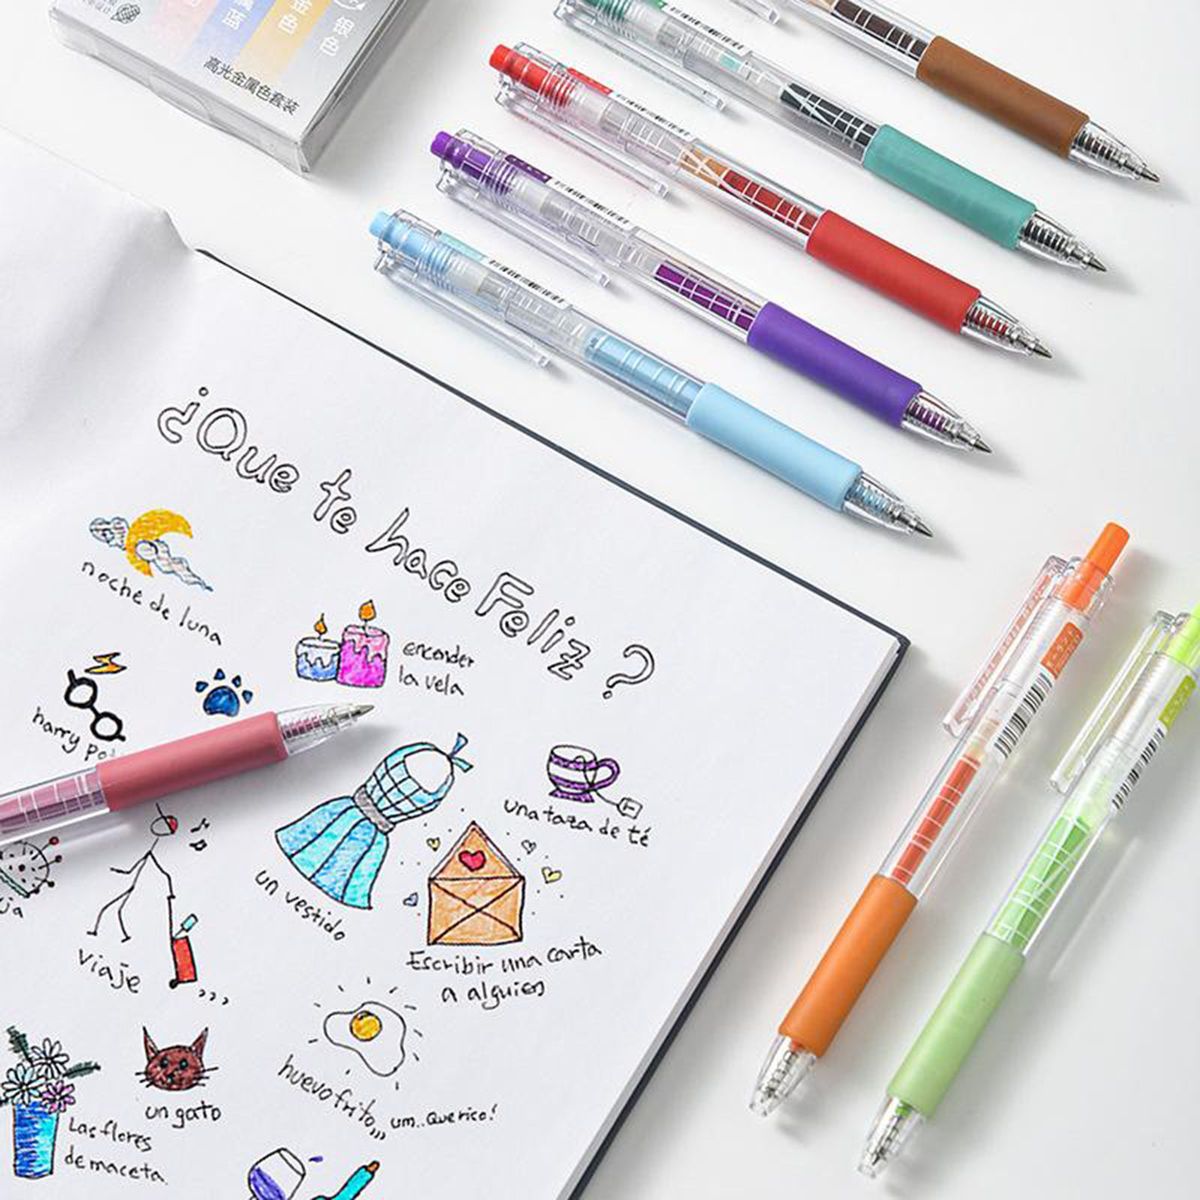 银色
金色
高光金属色套装
¿Que te hace Feliz?
noche de luna
encender
la vela
harry
una taza de té
un vestido
Escribir una carta
a alguien
viaje
huevo frito,,, um..Que rico!
un gato
Las flores
de maceta